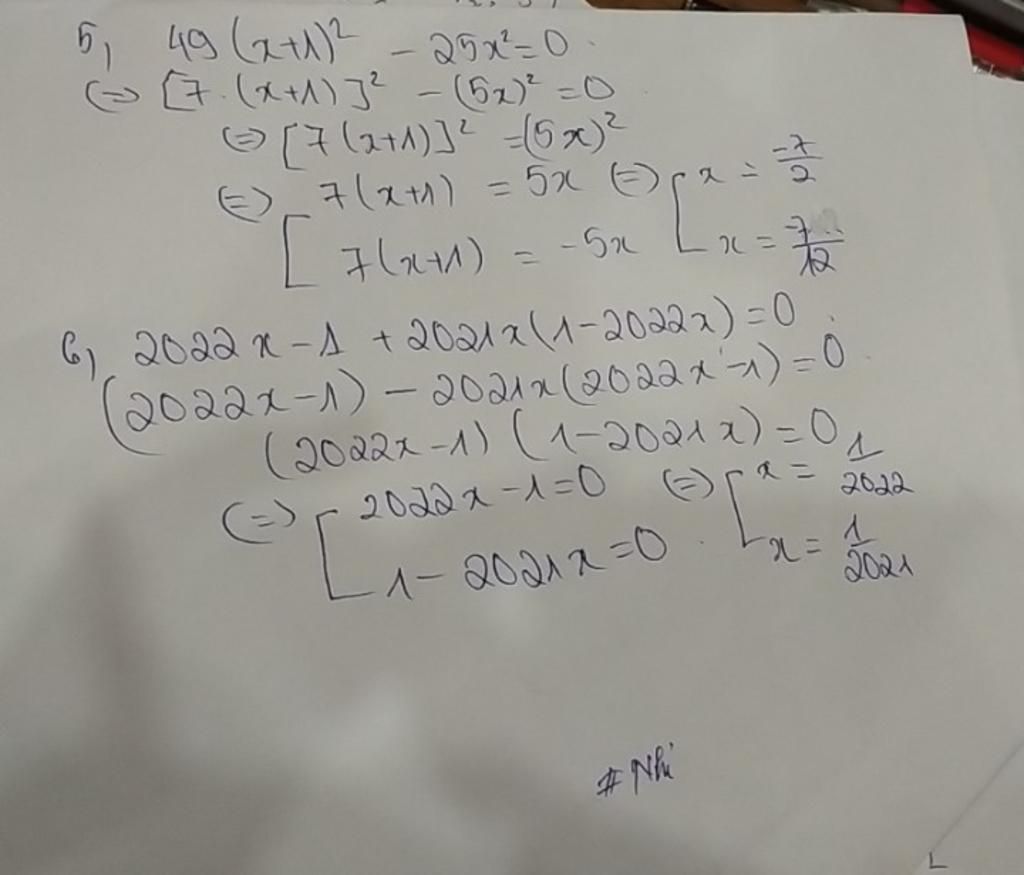 5, 49(x+1)² - 25x² = 0.
(=) [7.(x+1)]² - (5x)² = 0
(=) [7(x+1)]² = (5x)²
(=) [ 7(x+1) = 5x (=) [ x = -7/2
7(x+1) = -5x x = -7/12
6, 2022x - 1 + 2021x(1-2022x) = 0.
(2022x-1) - 2021x(2022x-1) = 0
(2022x-1) (1-2021x) = 0
(=) [ 2022x - 1 = 0 (=) [ x = 1/2022
1 - 2021x = 0. x = 1/2021
# Nhi